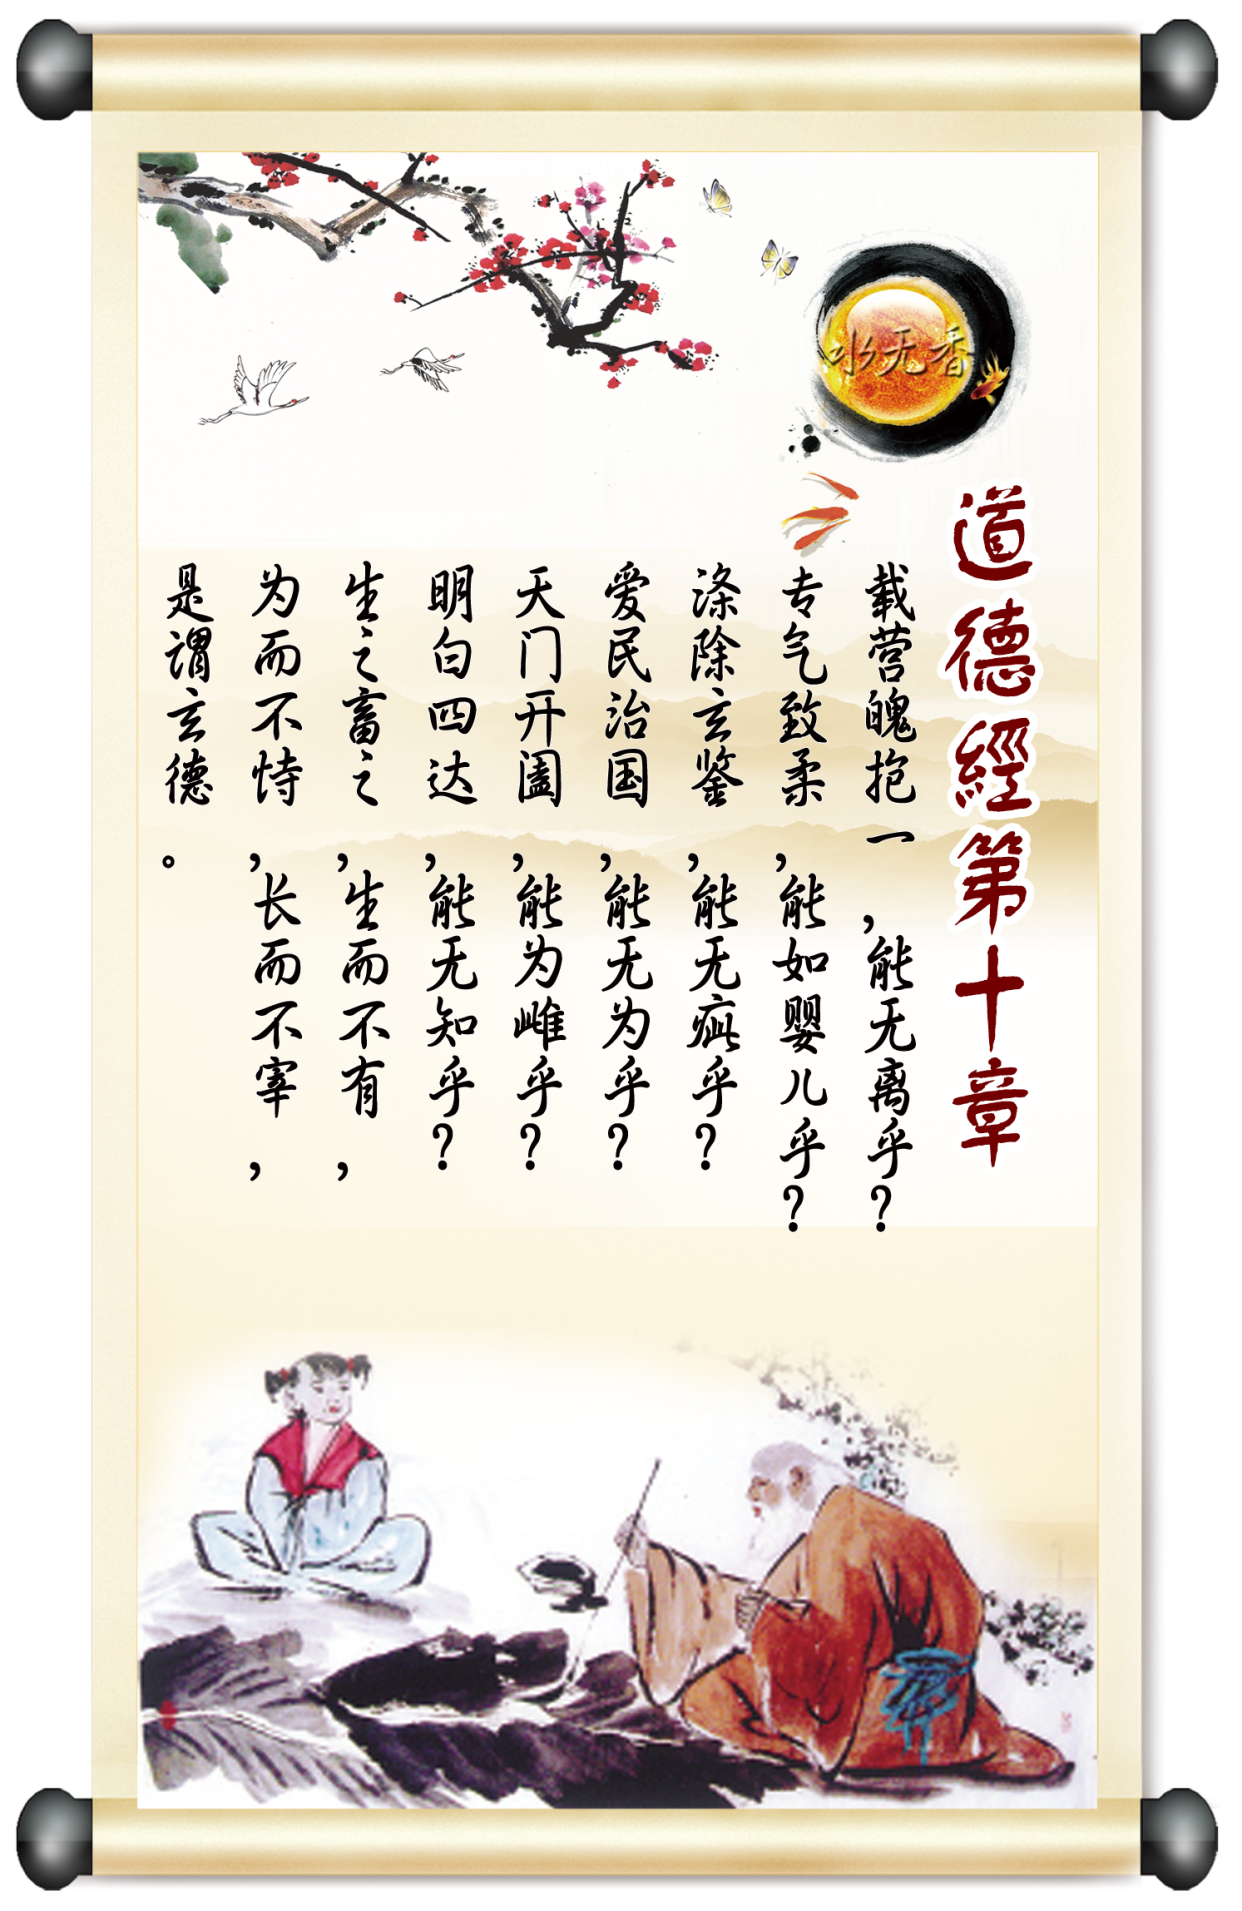 水无香
道德經第十章
载营魄抱一,能无离乎?
专气致柔,能如婴儿乎?
涤除玄鉴,能无疵乎?
爱民治国,能无为乎?
天门开阖,能为雌乎?
明白四达,能无知乎?
生之畜之,生而不有,
为而不恃,长而不宰,
是谓玄德。